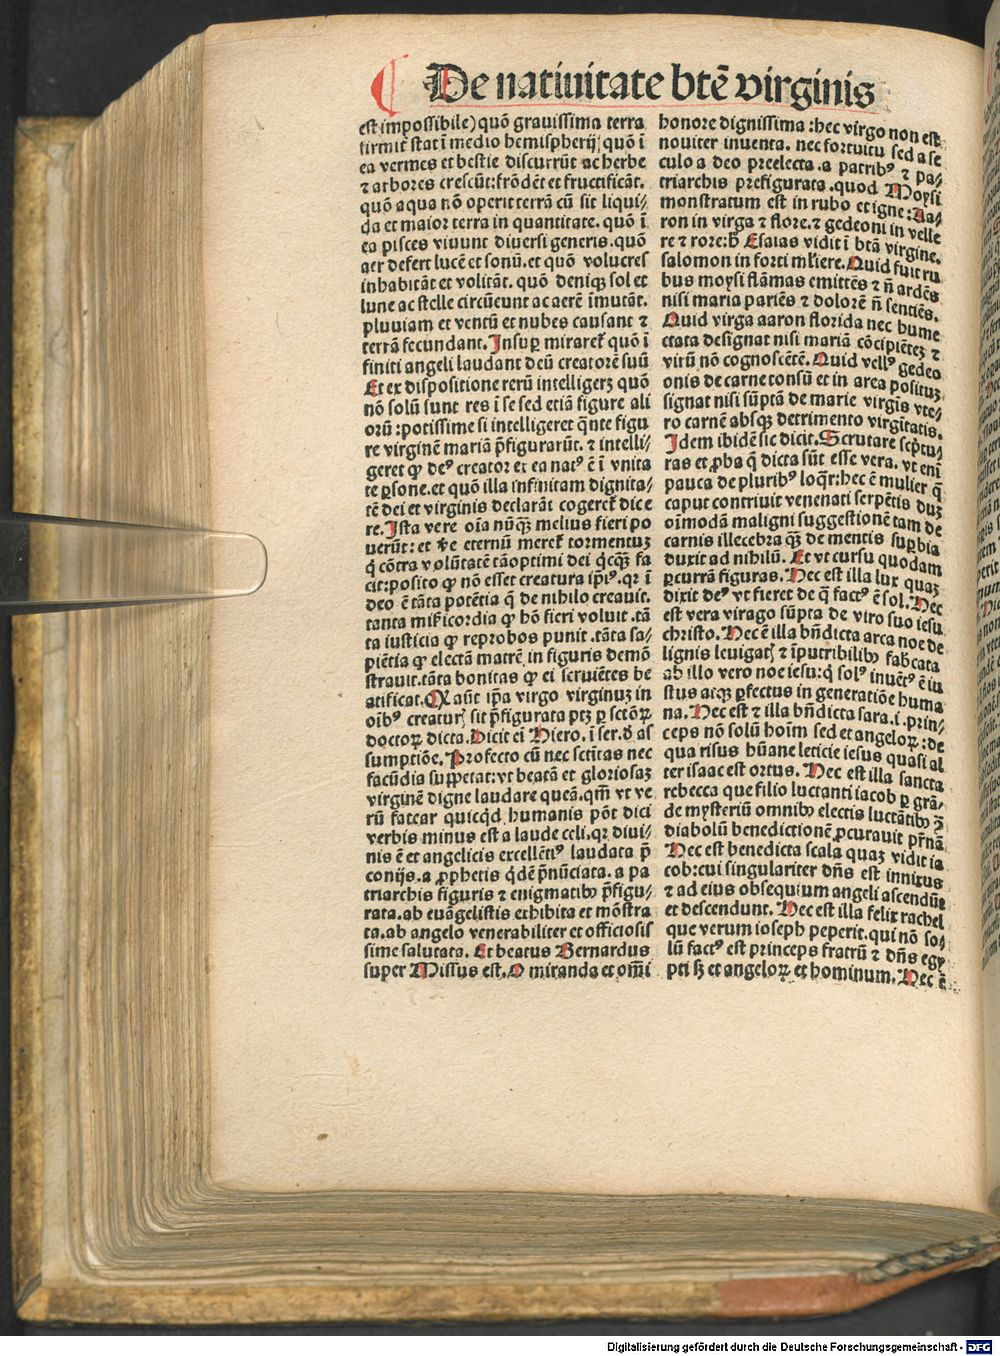 De natiuitate btē virginis
est impossibile) quō grauissima terra
firmit̄ stat ī medio hemispherij quō ī
ea vermes et bestie discurrūt ac herbe
⁊ arbores crescūt: frōdēt et fructificāt.
quō aqua nō operit terrā cū sit liqui⸗
da et maior terra in quantitate. quō ī
ea pisces viuunt diuersi generis. quō
aer defert lucē et sonū. et quō volucres
inhabitāt et volitāt. quō deniqꝫ sol et
lune ac stelle circūeunt ac aerē īmutāt.
pluuiam et ventū et nubes causant ⁊
terrā fecundant. Insuꝑ mirareť quō ī
finiti angeli laudant deū creatorē suū
Et ex dispositione rerū intelligerꝫ quō
nō solū sunt res ī se sed etiā figure ali
orū: potissime si intelligeret q̄nte figu
re virginē mariā p̄figurarūt. ⁊ intelli⸗
geret ꝙ deꝰ creator ex ea natꝰ ē ī vnita
te ꝑsone. et quō illa infinitam dignita⸗
tē dei et virginis declarāt cogereť dice
re. Ista vere oīa nūqꝫ melius fieri po
uerūt: et
q̇ cōtra volūtatē tā optimi dei q̇cqꝫ fa
cit: posito ꝙ nō esset creatura ip̄iꝰ. qꝛ ī
deo ē tāta potētia q̄ de nihilo creauit.
tanta mīcordia ꝙ hō fieri voluit. tā
ta iusticia ꝙ reprobos punit. tāta sa⸗
piētia ꝙ electā matrē in figuris demō
strauit. tāta bonitas ꝙ ei seruiētes be
atificat. Qꝫ aūt ip̄a virgo virginuꝫ in
oībꝰ creaturꝭ sit p̄figurata ptꝫ ꝑ sctōꝝ
doctoꝝ dicta. Dicit eī Hiero. ī ser. d̄ as
sumptiōe. Profecto cū nec sctitas nec
facūdia suppetat: vt beatā et gloriosaꝫ
virginē digne laudare queā. qm̄ vt ve
rū fatear quicq̇d humanis pōt dici
verbis minus est a laude celi. qꝛ diui⸗
nis ē et angelicis excellētiꝰ laudata p̄
conijs. a ꝓphetis q̇dē p̄nūciata. a pa
triarchis figuris ⁊ enigmatibꝰ p̄figu⸗
rata. ab euāgelistis exhibita et mōstra
ta. ab angelo venerabiliter et officiosis
sime salutata. Et beatus Bernardus
super Missus est. O miranda et om̄i
honore dignissima: hec virgo non est
nouiter inuenta. nec fortuitu sed a se
culo a deo preelecta. a patribꝰ ⁊ pa⸗
triarchis prefigurata. quod Moysi
monstratum est in rubo et igne: Aa⸗
ron in virga ⁊ flore. ⁊ gedeoni in velle
re ⁊ rore: h̄ Esaias vidit ī btā virgine.
salomon in forti mľiere. Quid fuit ru
bus moysi flāmas emittēs ⁊ n̄ ardēs
nisi maria pariēs ⁊ dolorē n̄ sentiēs.
Quid virga aaron florida nec hume
ctata designat nisi mariā cōcipiēteꝫ ⁊
virū nō cognoscētē. Quid vellꝰ gedeo
onis de carne tonsū et in area positus
signat nisi sūptā de marie virgīs vte⸗
ro carnē absqꝫ detrimento virgītatis.
Idem ibidē sic dicit. Scrutare scp̄tu⸗
ras et ꝓba q̄ dicta sūt esse vera. vt enī
pauca de pluribꝰ loq̄r: hec ē mulier q̄
caput contriuit venenati serpētis duꝫ
oīmodā maligni suggestionē tam de
carnis illecebra qꝫ de mentis suꝑbia
duxit ad nihilū. Et vt cursu quodam
ꝑcurrā figuras. Hec est illa lux quaꝫ
dixit deꝰ vt fieret de q̄ factꝰ ē sol. Hec
est vera virago sūpta de viro suo iesu
christo. Hec ē illa bn̄dicta arca noe de
lignis leuigatꝭ ⁊ īputribilibꝰ fabcata
ab illo vero noe iesu: q̇ solꝰ inuētꝰ ē iu
stus atqꝫ ꝑfectus in generatiōe huma
na. Hec est ⁊ illa bn̄dicta sara. i. prin⸗
ceps nō solū hoīm sed et angeloꝝ: de
qua risus hūane leticie iesus quasi al
ter isaac est ortus. Hec est illa sancta
rebecca que filio luctanti iacob ꝑ grā⸗
de mysteriū omnibꝰ electis luctātibꝰ
diabolū benedictionē ꝓcurauit pr̄nā
Hec est benedicta scala quaꝫ vidit ia
cob: cui singulariter dn̄s est innixus
⁊ ad eius obsequium angeli ascendūt
et descendunt. Hec est illa felix rachel
que verum ioseph peperit. qui nō so⸗
lū factꝰ est princeps fratrū ⁊ dn̄s egy
pti sꝫ et angeloꝝ et hominum. Hec ē
Digitalisierung gefördert durch die Deutsche Forschungsgemeinschaft - DFG